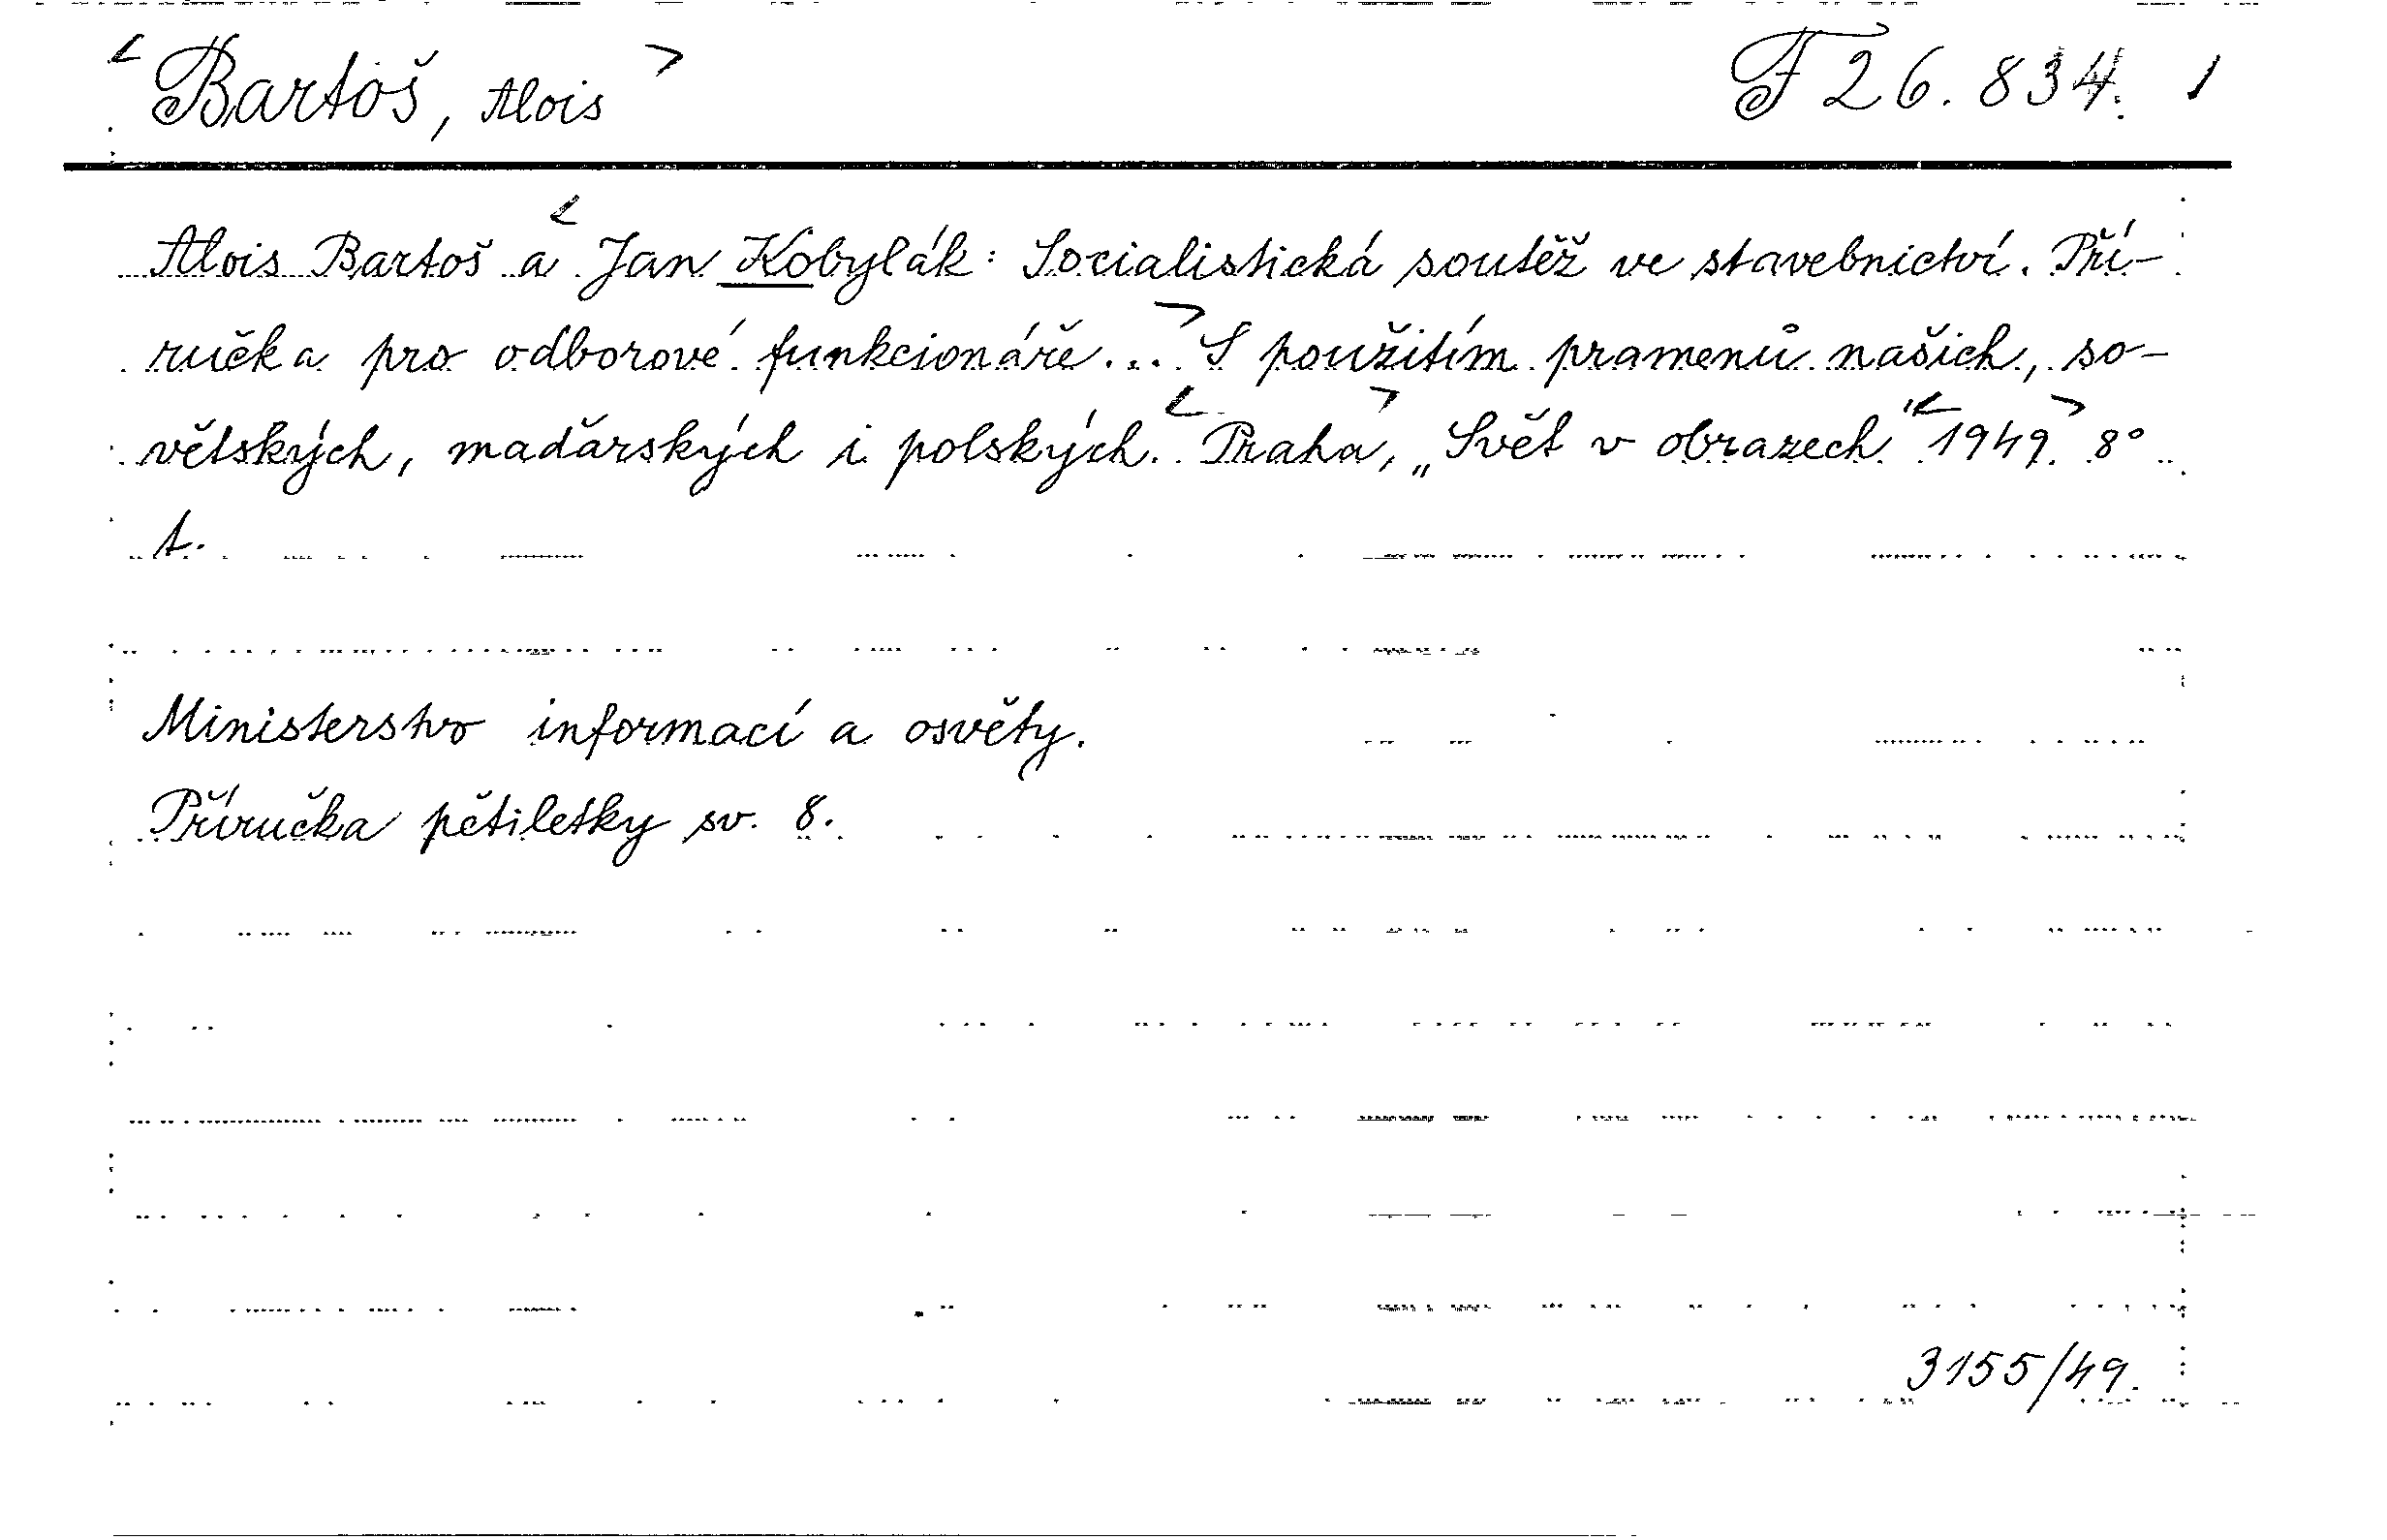 <Bartoš, Alois> F 26.834. /
Alois Bartoš a <Jan Kobylák: Socialistická soutěž ve stavebnictví. Pří-
ručka pro odborové funkcionáře...> S použitím pramenů našich, so-
větských, maďarských i polských. <Praha,> „Svět v obrazech" <1949.> 8°
t.
Ministerstvo informací a osvěty.
Příručka pětiletky sv. 8.
3155/49.